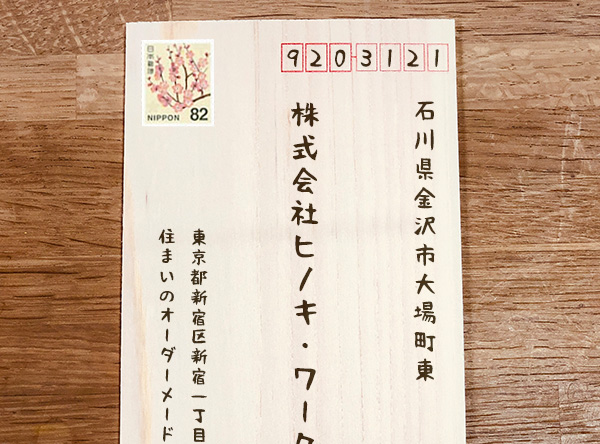 日本郵便
NIPPON 82
9203121
石川県金沢市大場町東
株式会社ヒノキ・ワーク
東京都新宿区新宿一丁目
住まいのオーダーメード